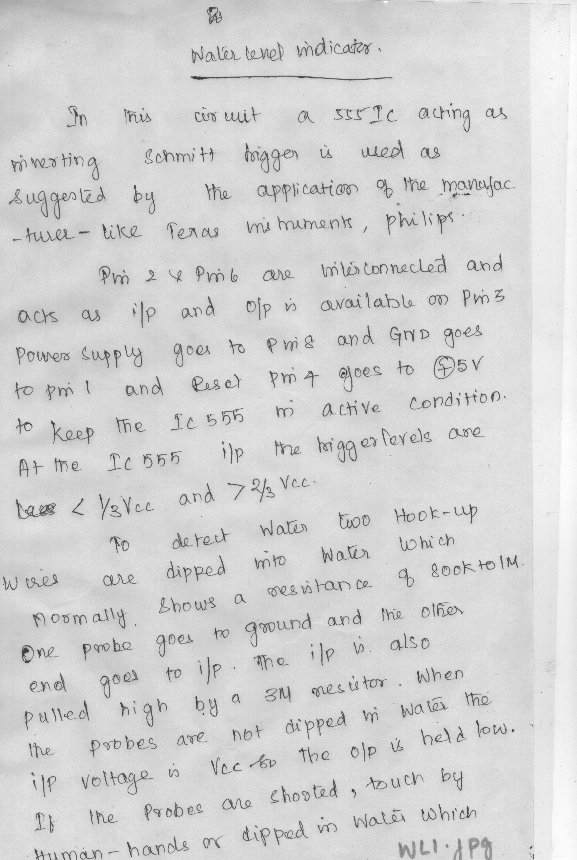 2
Water level indicator.
In this circuit a 555 Ic acting as
inverting Schmitt trigger is used as
suggested by the application of the manufac
-turer - like Texas instruments, philips.
Pin 2 & Pin 6 are interconnected and
acts as i/p and o/p is available on Pin 3
Power supply goes to Pin 8 and GND goes
to pin 1 and Reset Pin 4 goes to +5V
to keep the Ic 555 in active condition.
At the Ic 555 i/p the trigger levels are
< 1/3 Vcc and > 2/3 Vcc.
To detect Water two Hook-up
Wires are dipped into Water which
normally. Shows a resistance of 800K to 1M.
One probe goes to ground and the other
end goes to i/p. The i/p is also
pulled high by a 3M resistor. When
the probes are not dipped in water the
i/p voltage is Vcc so the o/p is held low.
If the Probes are shorted, touch by
Human-hands or dipped in Water which
WL1.jpg